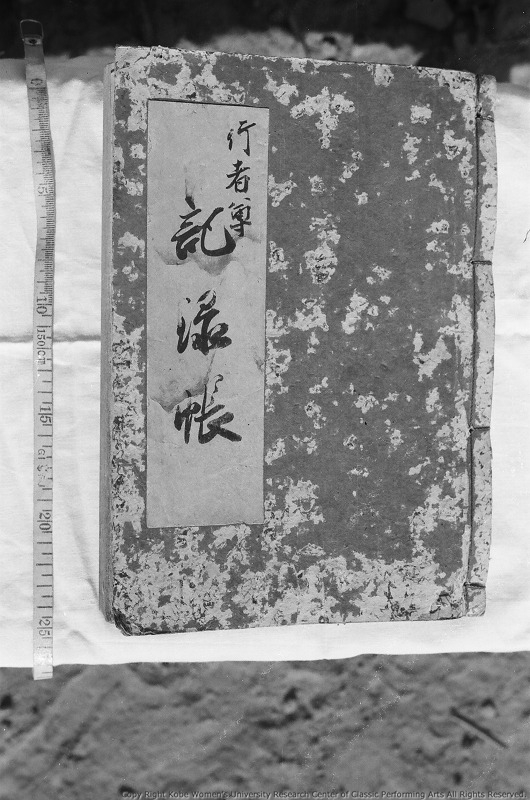 行者講
記録帳
5
10
150Cm
15
20
25
Copy Right Kobe Women's University Research Center of Classic Performing Arts All Rights Reserved.